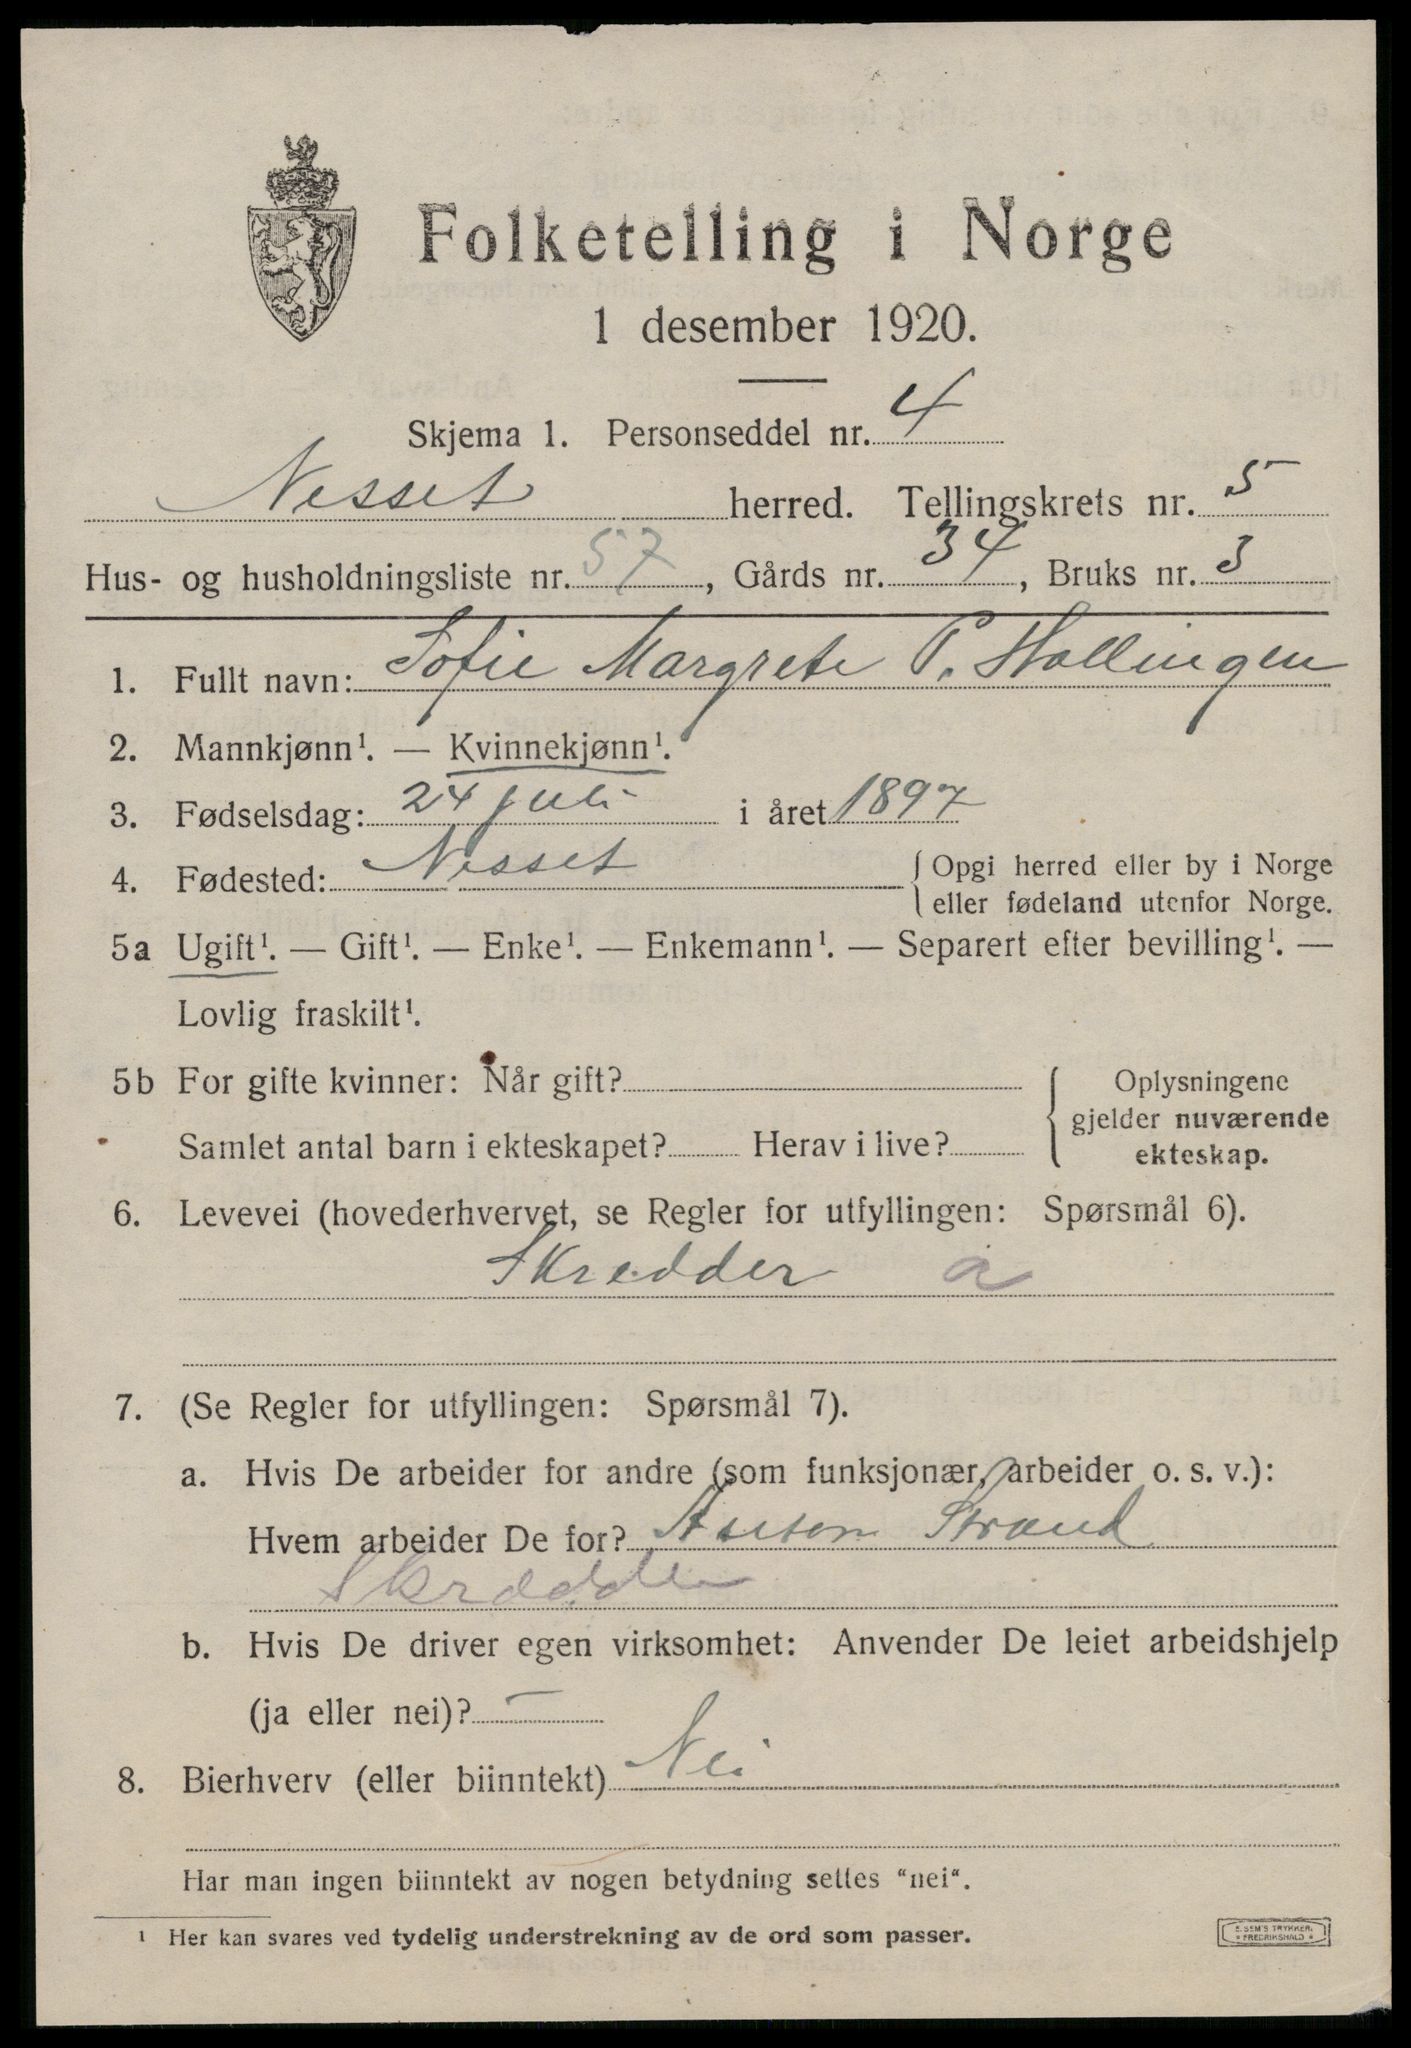 Folketelling i Norge
1 desember 1920.
Skjema 1. Personseddel nr. 4
Nesset herred. Tellingskrets nr. 5
Hus- og husholdningsliste nr. 57, Gårds nr. 34, Bruks nr. 3
1. Fullt navn: Sofie Margrete P. Hallingen
2. Mannkjønn¹. — Kvinnekjønn¹.
3. Fødselsdag: 24 juli i året 1897
4. Fødested: Nesset { Opgi herred eller by i Norge
eller fødeland utenfor Norge.
5a Ugift¹. — Gift¹. — Enke¹. — Enkemann¹. — Separert efter bevilling¹. —
Lovlig fraskilt¹.
5b For gifte kvinner: Når gift?
Samlet antal barn i ekteskapet? Herav i live?
{ Oplysningene
gjelder nuværende
ekteskap.
6. Levevei (hovederhvervet, se Regler for utfyllingen: Spørsmål 6).
Skredder a
7. (Se Regler for utfyllingen: Spørsmål 7).
a. Hvis De arbeider for andre (som funksjonær, arbeider o. s. v.):
Hvem arbeider De for? Anton Strand
Skrædder
b. Hvis De driver egen virksomhet: Anvender De leiet arbeidshjelp
(ja eller nei)? —
8. Bierhverv (eller biinntekt) Nei
Har man ingen biinntekt av nogen betydning settes "nei".
¹ Her kan svares ved tydelig understrekning av de ord som passer.
E. SEM'S TRYKKER.
* FREDRIKSHALD *